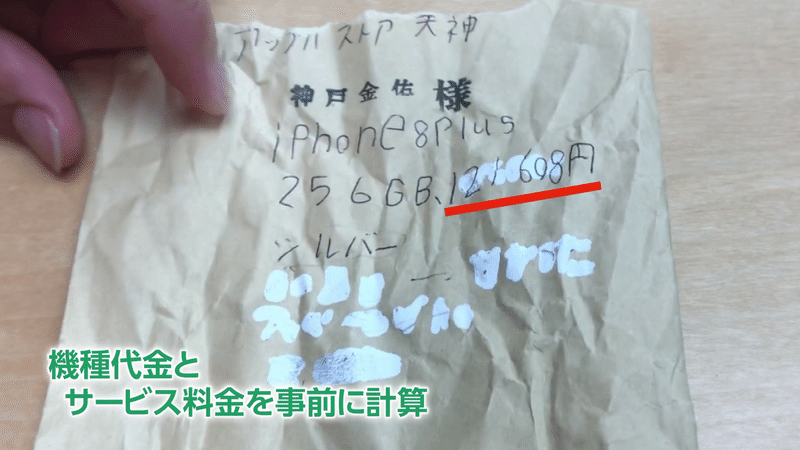 アップル ストア 天神
神戸金佑 様
iphone 8plus
256GB、121,608円
シルバー
機種代金と
サービス料金を事前に計算